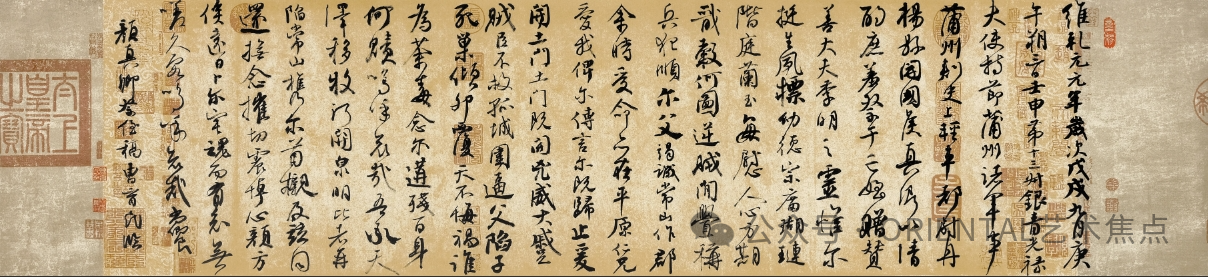 維乾元元年歲次戊戌九月庚
午朔三日壬申第十三叔銀青光祿
夫使持節蒲州諸軍事
蒲州刺史上輕車都尉丹
楊縣開國侯真卿以清
酌庶羞祭于亡姪贈贊
善大夫季明之靈惟爾
挺生夙標幼德宗廟瑚璉
階庭蘭玉每慰人心方期
戩穀何圖逆賊閒釁稱
兵犯順尔父竭誠常山作郡
余時受命亦在平原仁兄
愛我俾尔傳言尔既歸止爰
開土門土門既開凶威大蹙
賊臣不救孤城圍逼父陷子
死巢傾卵覆天不悔禍誰
為荼毒念尔遘殘百身
何贖嗚乎哀哉吾承天
澤移牧河關泉明比者再
陷常山攜尔首櫬及兹同
還撫念摧切震悼心顏方
俟遠日卜尔宅魂而有知無
嗟久客嗚呼哀哉尚饗
顏真卿祭侄稿 曹民臨
太上皇帝之寶
公众号 · ORIENTAL艺术焦点